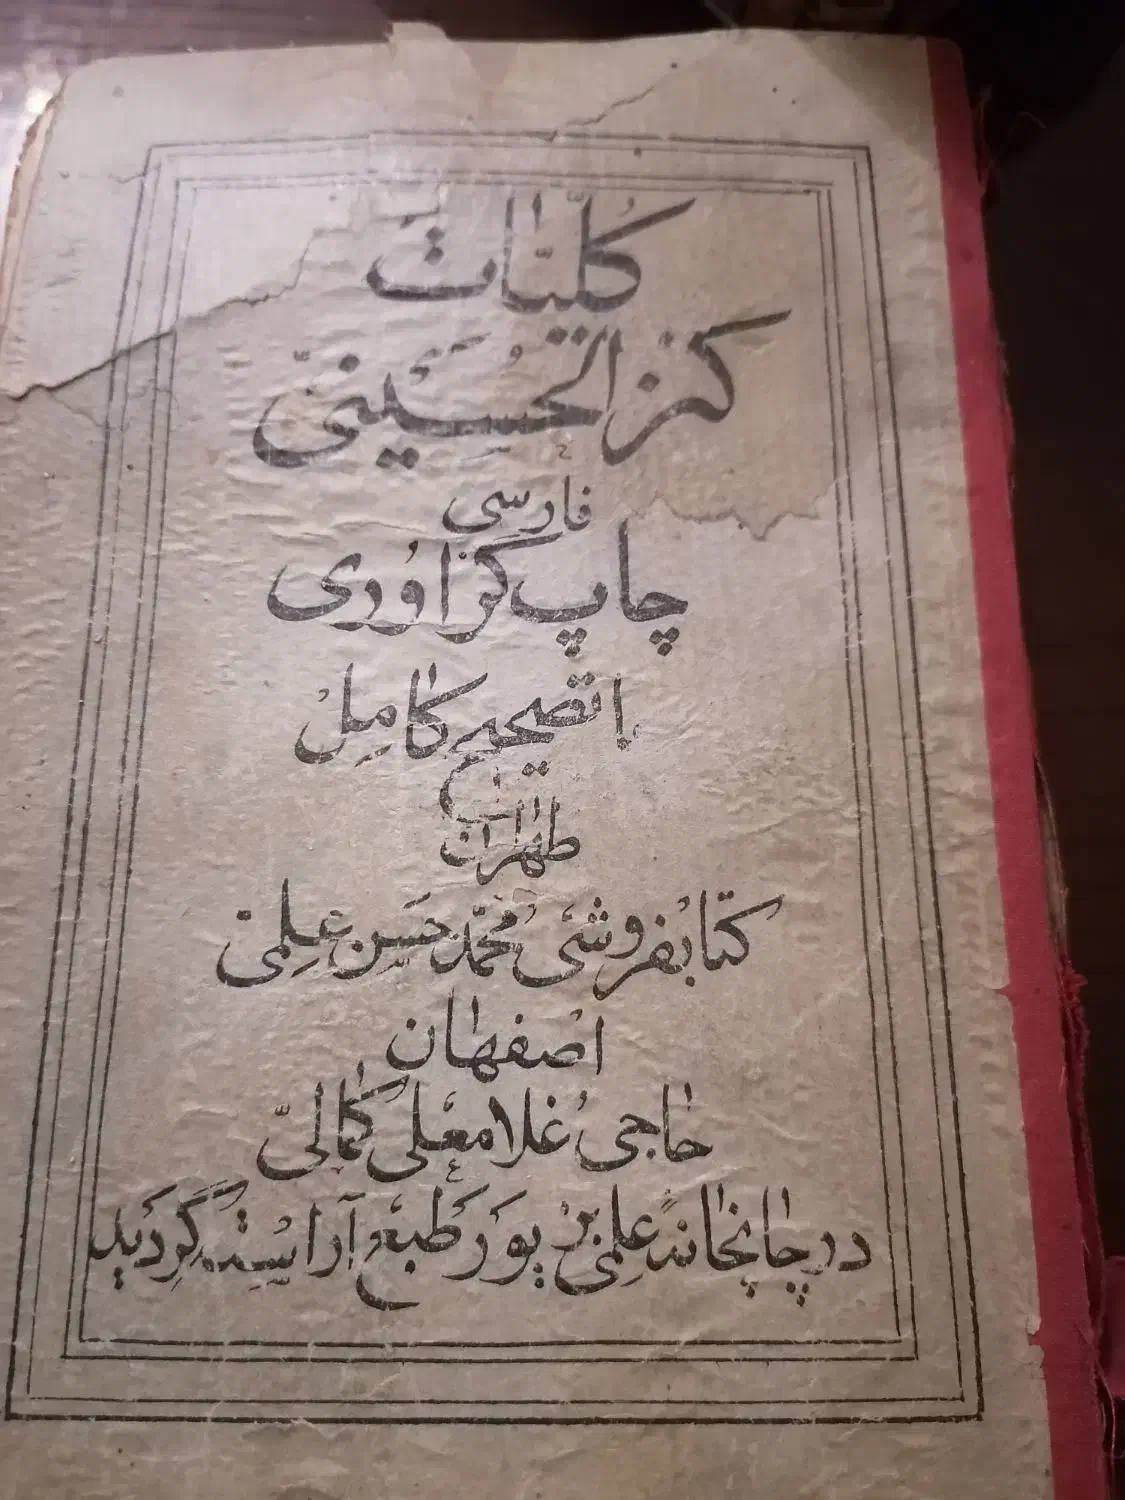 کلیّات
کنز الحُسینیّ
فارسی
چاپ گراوُری
با تصحیح کامِل
طهران
کتابفروشی محمّد حَسَن عِلمی
اصفهان
حاجی غلامعلی کمالیّ
در چاپخانهٔ علمی بزیور طبع آراسته گردید